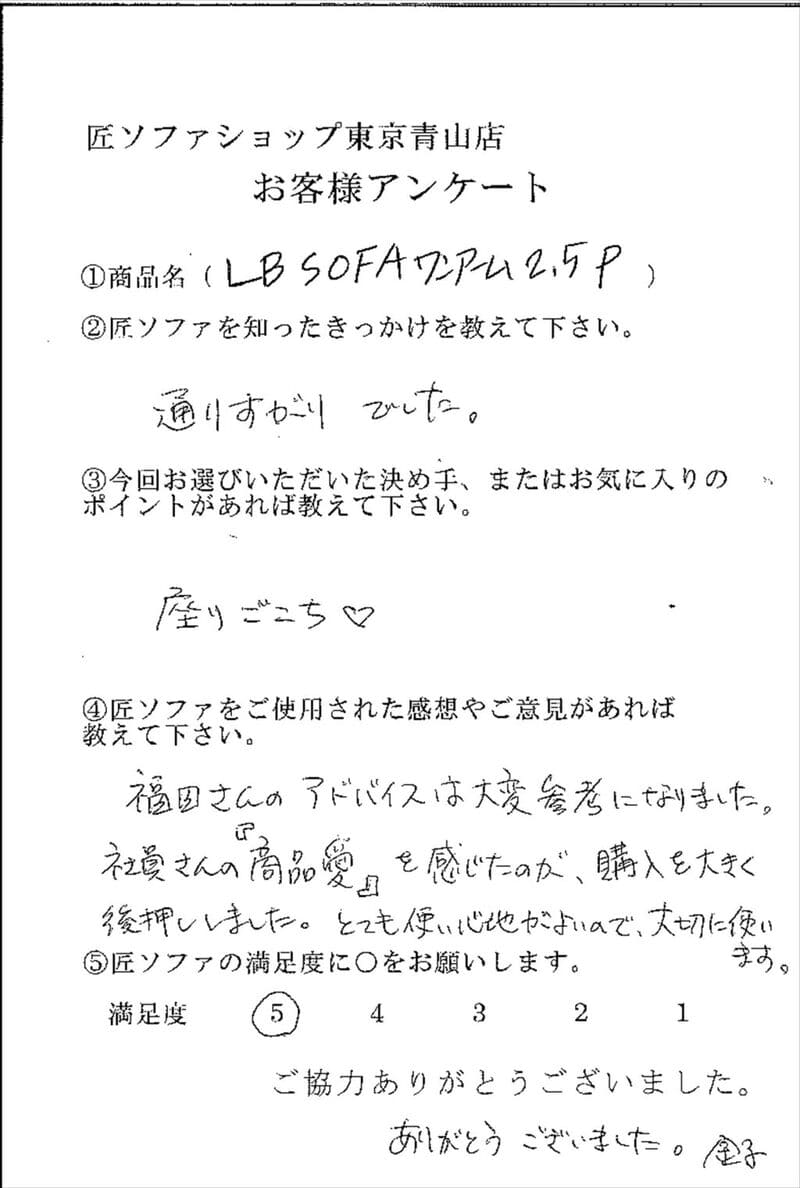 匠ソファショップ東京青山店
お客様アンケート
①商品名（LB SOFA ワンアーム 2.5P）
②匠ソファを知ったきっかけを教えて下さい。
通りすがり でした。
③今回お選びいただいた決め手、またはお気に入りの
ポイントがあれば教えて下さい。
座りごこち♡
④匠ソファをご使用された感想やご意見があれば
教えて下さい。
福田さんの アドバイスは大変参考になりました。
社員さんの『商品愛』を感じたのが、購入を大きく
後押ししました。とても使い心地がよいので、大切に使い
ます。
⑤匠ソファの満足度に○をお願いします。
満足度 5 4 3 2 1
ご協力ありがとうございました。
ありがとう ございました。 金子